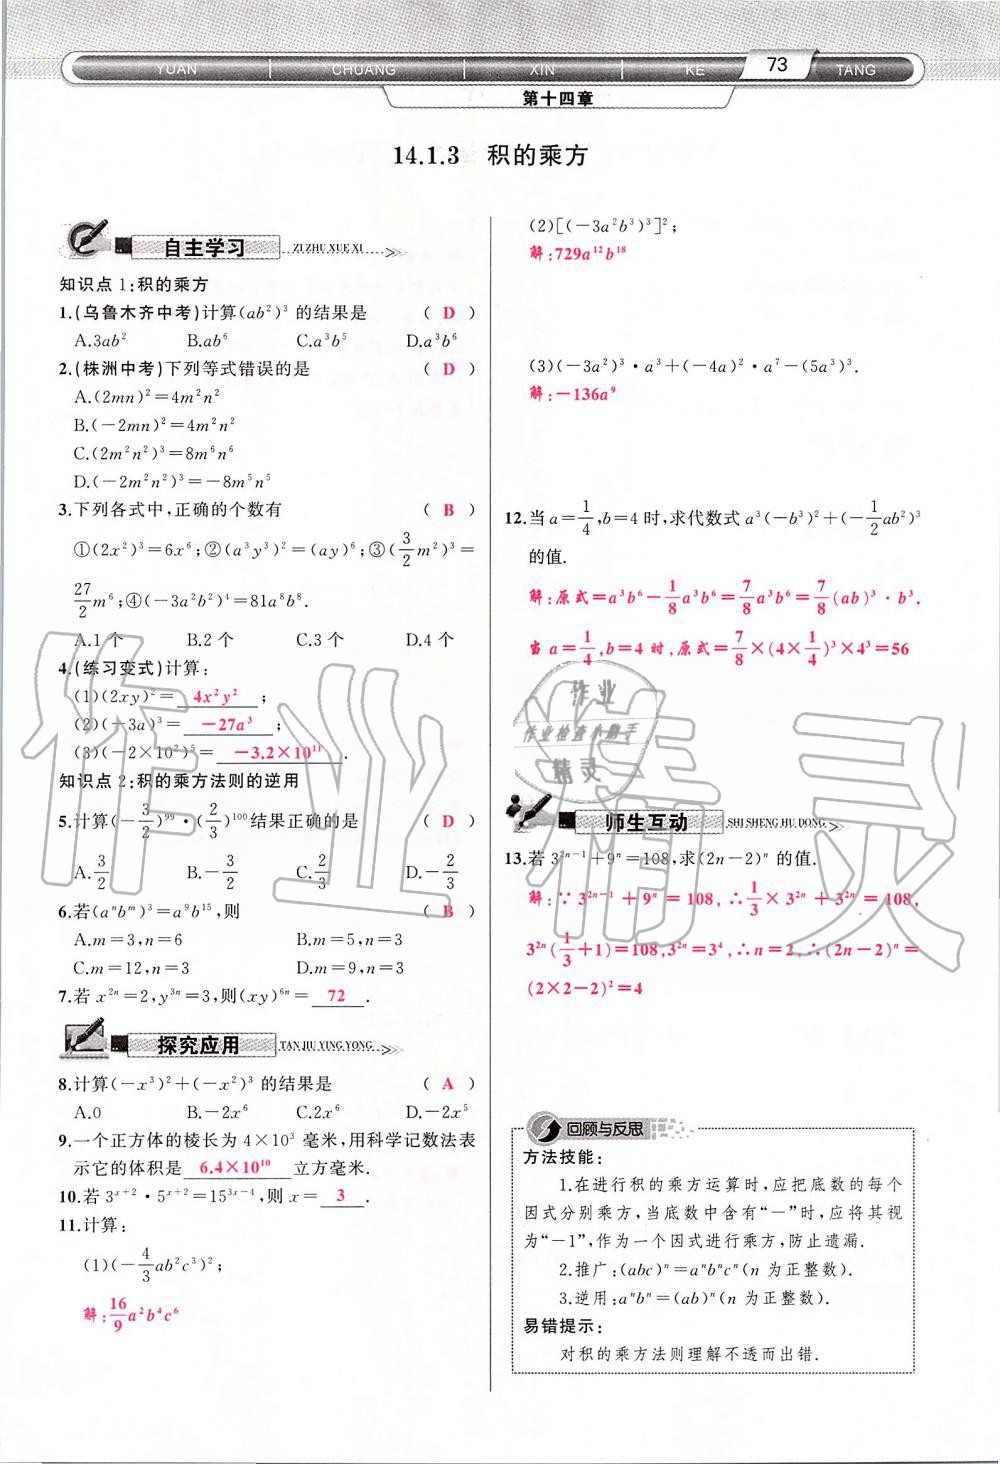 YUAN CHUANG XIN KE 73 TANG
第十四章
14.1.3 积的乘方
自主学习 ZI ZHU XUE XI
知识点1:积的乘方
1.(乌鲁木齐中考)计算(ab²)³的结果是 ( D )
A.3ab² B.ab⁶ C.a³b⁵ D.a³b⁶
2.(株洲中考)下列等式错误的是 ( D )
A.(2mn)²=4m²n²
B.(-2mn)²=4m²n²
C.(2m²n²)³=8m⁶n⁶
D.(-2m²n²)³=-8m⁵n⁵
3.下列各式中,正确的个数有 ( B )
①(2x²)³=6x⁶;②(a³y³)²=(ay)⁶;③(3/2 m²)³=
27/2 m⁶;④(-3a²b²)⁴=81a⁸b⁸.
A.1个 B.2个 C.3个 D.4个
4.(练习变式)计算:
(1)(2xy)²= 4x²y² ;
(2)(-3a)³= -27a³ ;
(3)(-2×10²)⁵= -3.2×10¹¹ .
知识点2:积的乘方法则的逆用
5.计算(-3/2)⁹⁹·(2/3)¹⁰⁰结果正确的是 ( D )
A.3/2 B.-3/2 C.2/3 D.-2/3
6.若(aⁿbᵐ)³=a⁹b¹⁵,则 ( B )
A.m=3,n=6 B.m=5,n=3
C.m=12,n=3 D.m=9,n=3
7.若x²ⁿ=2,y³ⁿ=3,则(xy)⁶ⁿ= 72 .
探究应用 TAN JIU YING YONG
8.计算(-x³)²+(-x²)³的结果是 ( A )
A.0 B.-2x⁶ C.2x⁶ D.-2x⁵
9.一个正方体的棱长为4×10³毫米,用科学记数法表
示它的体积是 6.4×10¹⁰ 立方毫米.
10.若3ˣ⁺²·5ˣ⁺²=15³ˣ⁻⁴,则x= 3 .
11.计算:
(1)(-4/3 ab²c³)²;
解:16/9 a²b⁴c⁶
(2)[(-3a²b³)³]²;
解:729a¹²b¹⁸
(3)(-3a³)³·a³+(-4a)²·a⁷-(5a³)³.
解:-136a⁹
12.当a=1/4,b=4时,求代数式a³(-b³)²+(-1/2 ab²)³
的值.
解:原式=a³b⁶-1/8 a³b⁶=7/8 a³b⁶=7/8 (ab)³·b³.
当a=1/4,b=4时,原式=7/8×(4×1/4)³×4³=56
师生互动 SHI SHENG HU DONG
13.若3²ⁿ⁻¹+9ⁿ=108,求(2n-2)ⁿ的值.
解:∵3²ⁿ⁻¹+9ⁿ=108,∴1/3×3²ⁿ+3²ⁿ=108,
3²ⁿ(1/3+1)=108,3²ⁿ=3⁴,∴n=2,∴(2n-2)ⁿ=
(2×2-2)²=4
回顾与反思
方法技能:
1.在进行积的乘方运算时,应把底数的每个
因式分别乘方,当底数中含有“-”时,应将其视
为“-1”,作为一个因式进行乘方,防止遗漏.
2.推广:(abc)ⁿ=aⁿbⁿcⁿ(n为正整数).
3.逆用:aⁿbⁿ=(ab)ⁿ(n为正整数).
易错提示:
对积的乘方法则理解不透而出错.
作业精灵
作业
作业检查小助手
精灵